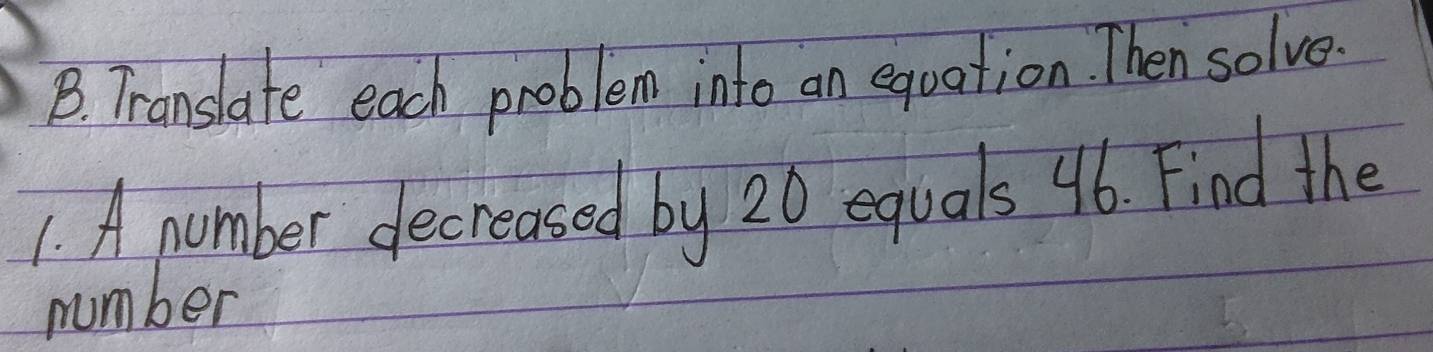 B. Translate each problem into an equation. Then solve.
1. A number decreased by 20 equals 46. Find the
number